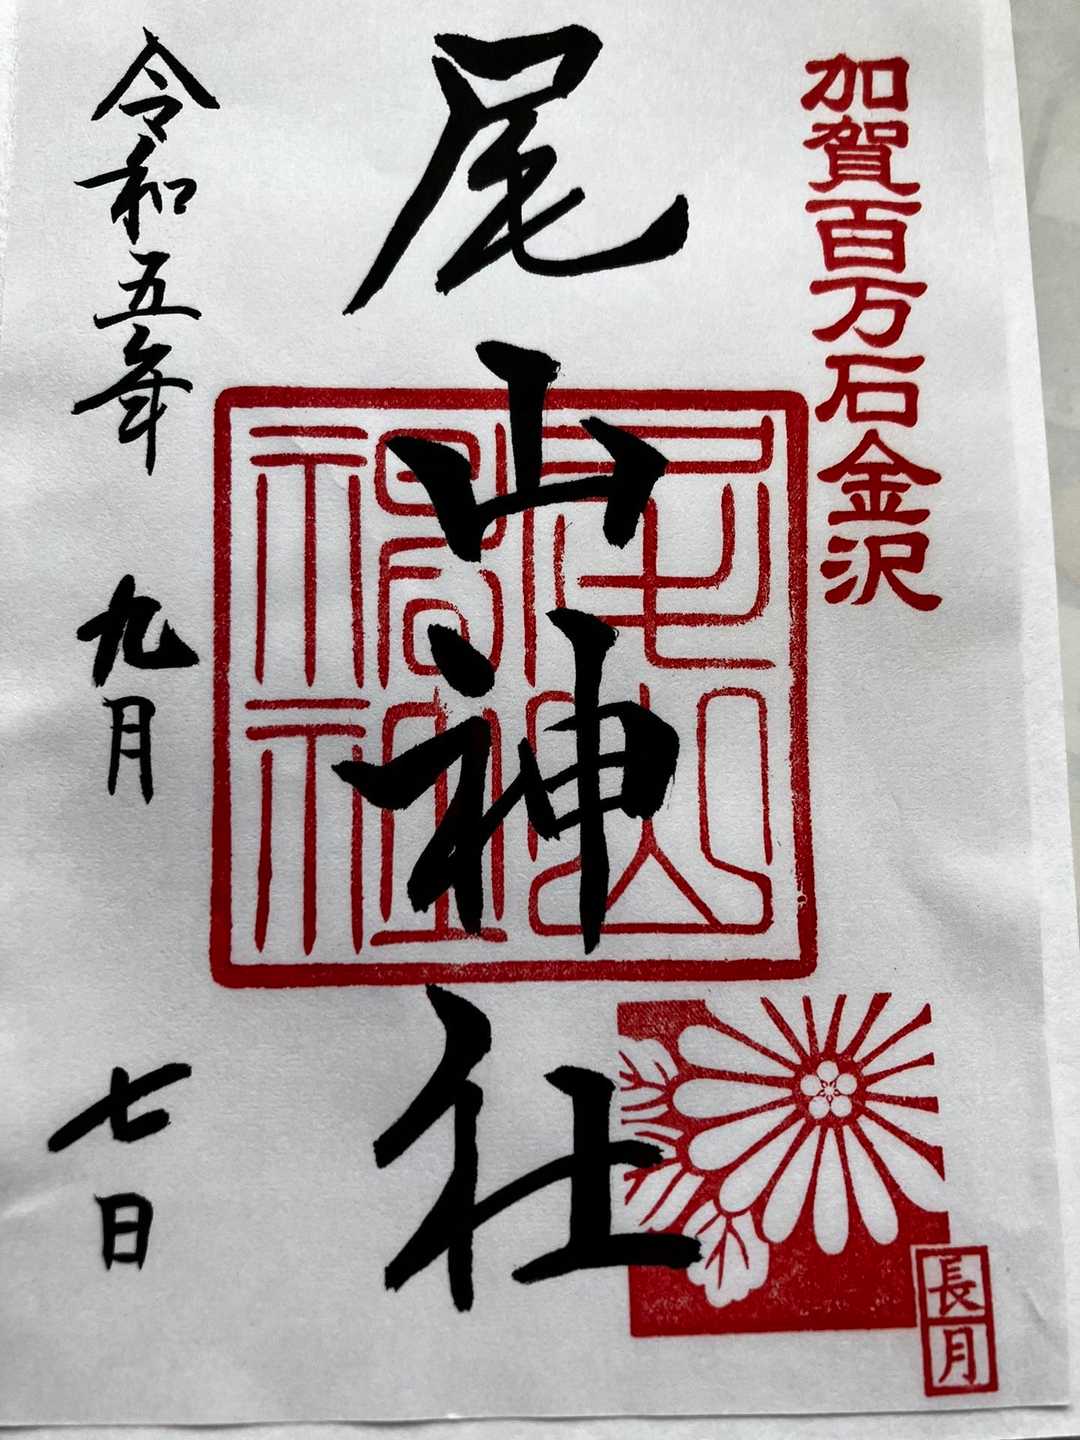 加賀百万石金沢
尾山神社
尾山神社
長月
令和五年
九月
七日